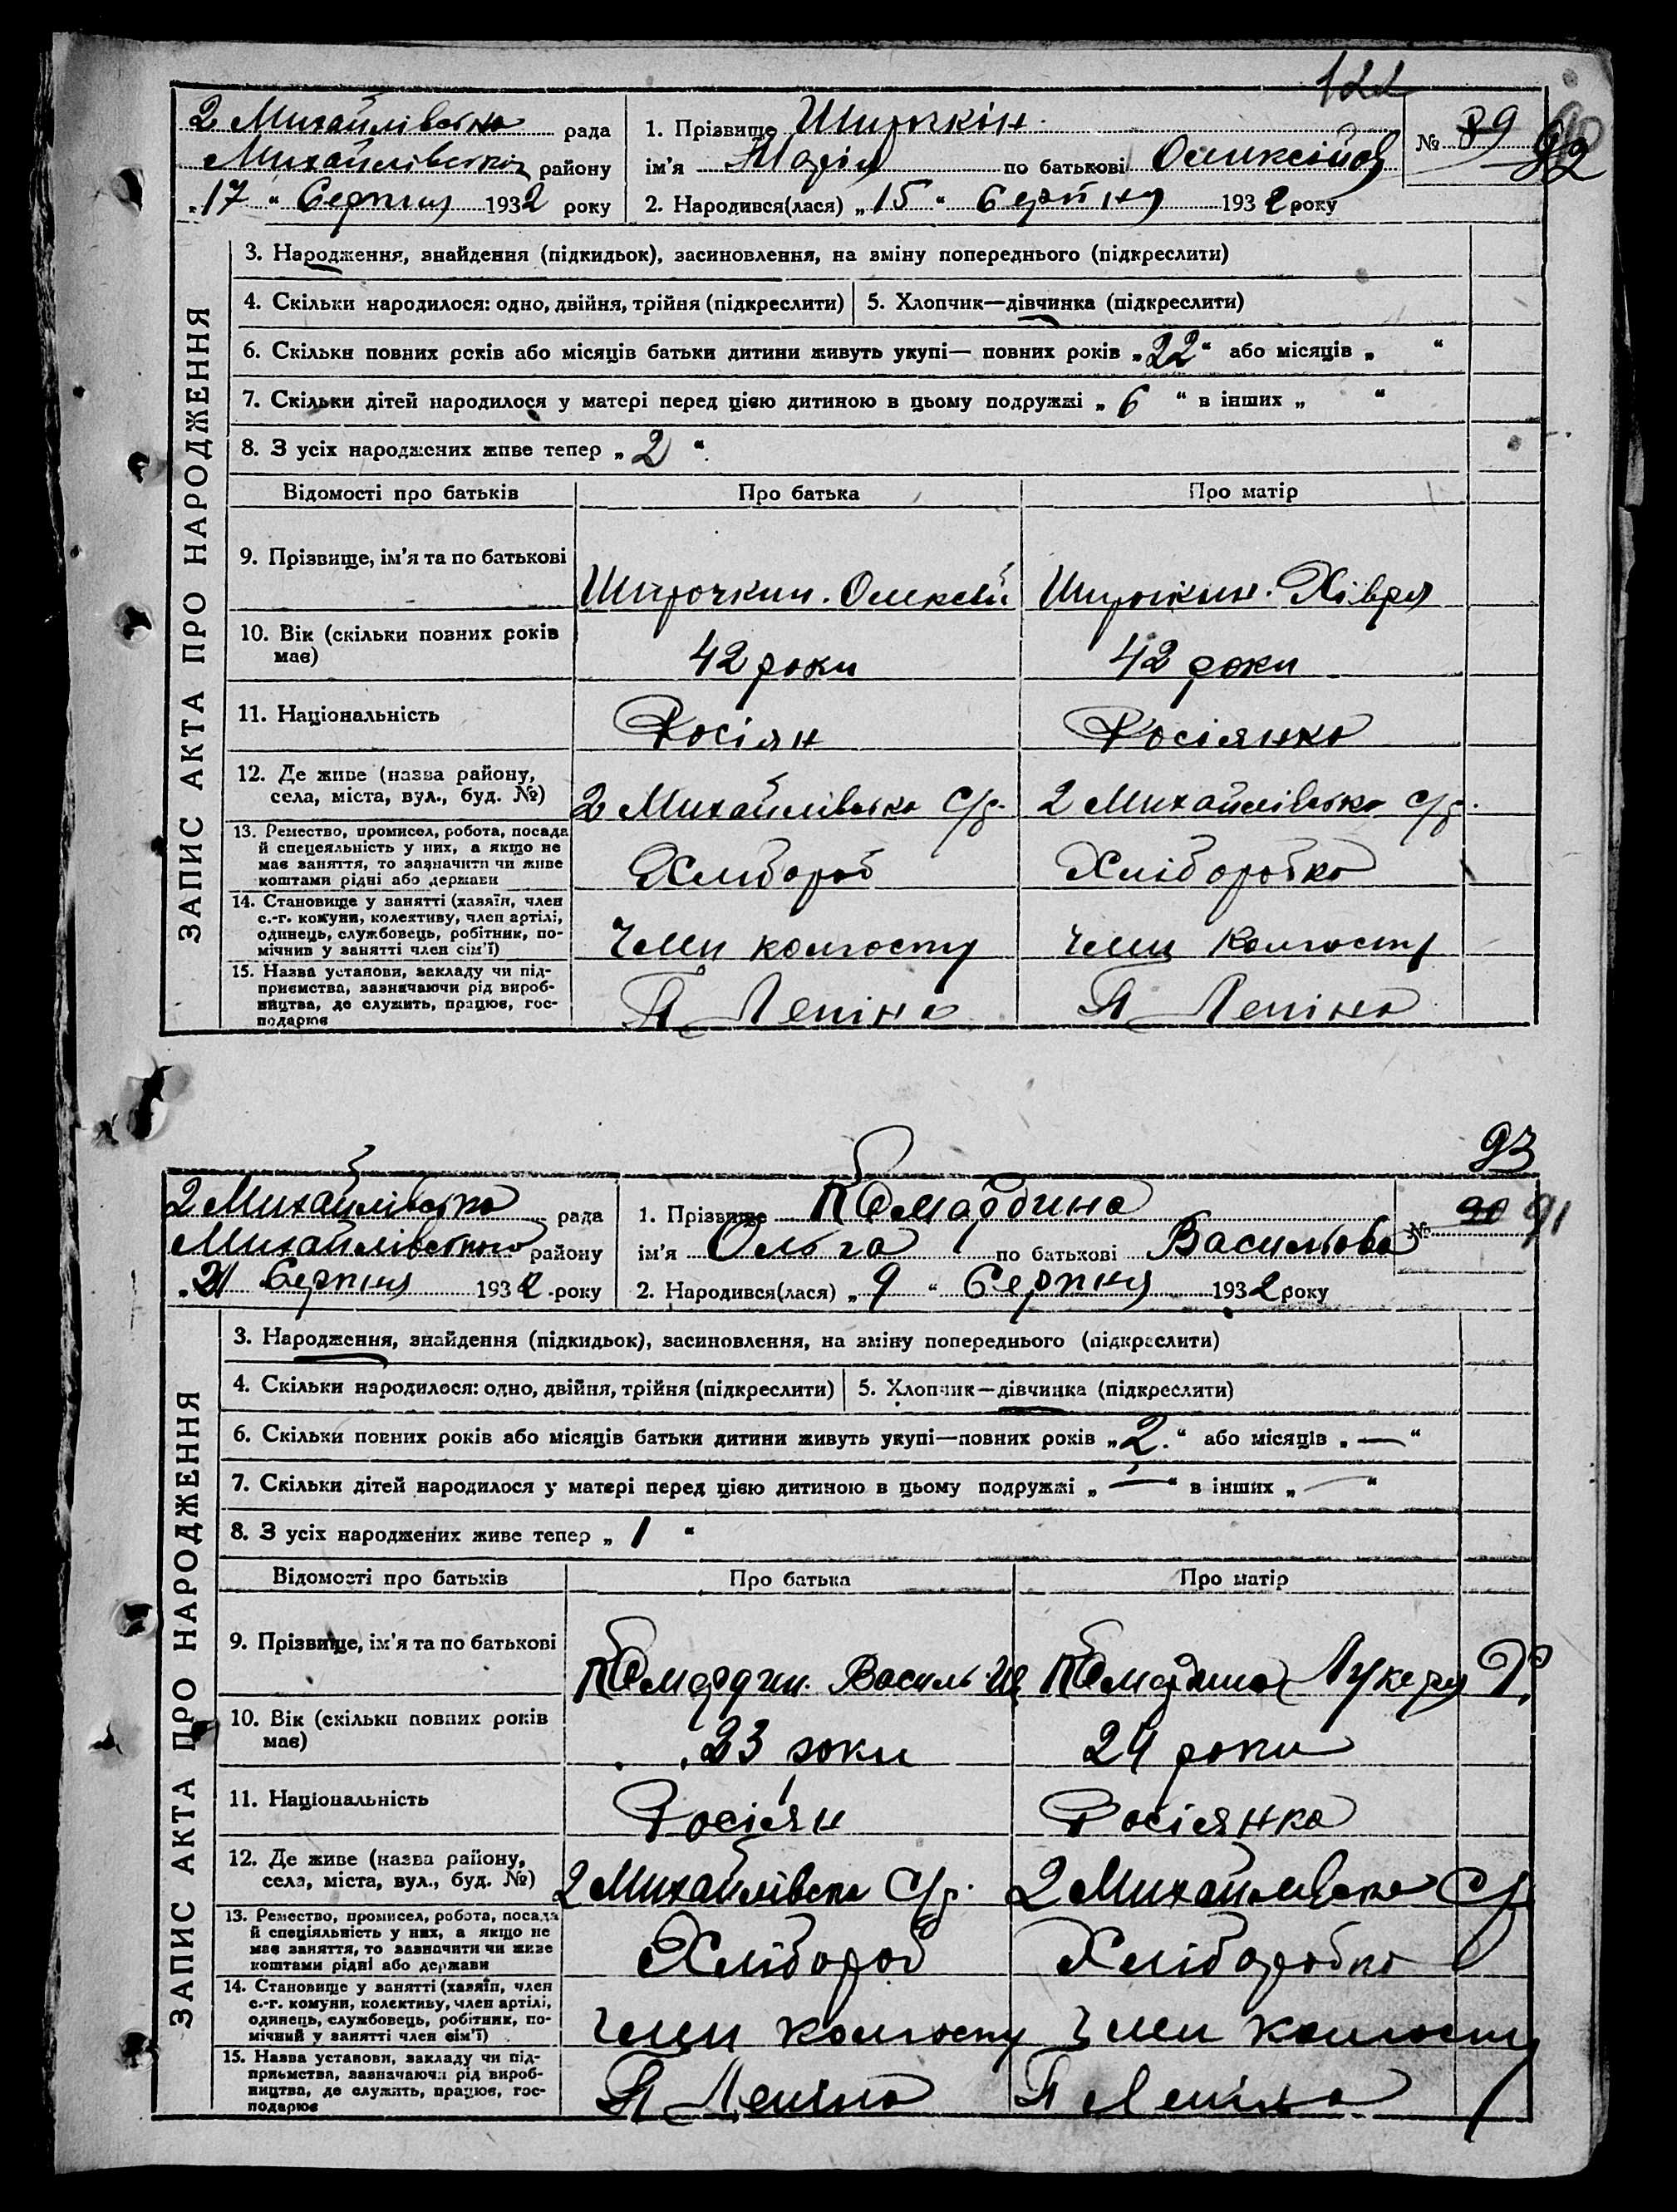 122
2 Михайлівська рада
Михайлівськ району
„17 “ Серпня 1932 року
1. Прізвище
ім'я Марія по батькові Олексійов
№ 89 92
2. Народився(лася) „15 “ Серпня 1932 року
ЗАПИС АКТА ПРО НАРОДЖЕННЯ
3. Народження, знайдення (підкидьок), засиновлення, на зміну попереднього (підкреслити)
4. Скільки народилося: одно, двійня, трійня (підкреслити)
5. Хлопчик—дівчинка (підкреслити)
6. Скільки повних років або місяців батьки дитини живуть укупі— повних років „22“ або місяців „ “
7. Скільки дітей народилося у матері перед цією дитиною в цьому подружжі „ 6 “ в інших „ “
8. З усіх народжених живе тепер „ 2 “
Відомості про батьків
Про батька
Про матір
9. Прізвище, ім'я та по батькові
Широчкин. Олексій
Хівря
10. Вік (скільки повних років
має)
42 роки
42 роки
11. Національність
Росіян
Росіянка
12. Де живе (назва району,
села, міста, вул., буд. №)
2 Михайлівська С/р.
2 Михайлівська С/р.
13. Ремество, промисел, робота, посада
й спецеяльність у них, а якщо не
має заняття, то зазначити чи живе
коштами рідні або держави
Хлібороб
Хлібофобка
14. Становище у занятті (хазяїн, член
с.-г. комуни, колективу, член артілі,
одинець, службовець, робітник, по-
мічник у занятті член сім'ї)
Член колгоспу
Член колгоспу
15. Назва установи, закладу чи під-
приємства, зазначаючи рід вироб-
ництва, де служить, працює, гос-
подарює
Леніна
Леніна
93
2 Михайлівська рада
Михайлівського району
„21 Серпня 1932 року
1. Прізвище Помардина
ім'я Ольга по батькові Васильова
№ 90 91
2. Народився(лася) „ 9 “ Серпня 1932 року
ЗАПИС АКТА ПРО НАРОДЖЕННЯ
3. Народження, знайдення (підкидьок), засиновлення, на зміну попереднього (підкреслити)
4. Скільки народилося: одно, двійня, трійня (підкреслити)
5. Хлопчик—дівчинка (підкреслити)
6. Скільки повних років або місяців батьки дитини живуть укупі—повних років „2.“ або місяців „ — “
7. Скільки дітей народилося у матері перед цією дитиною в цьому подружжі „ — “ в інших „ — “
8. З усіх народжених живе тепер „ 1 “
Відомості про батьків
Про батька
Про матір
9. Прізвище, ім'я та по батькові
Василь
Лукеря
10. Вік (скільки повних років
має)
23 роки
24 роки
11. Національність
Росіян
Росіянка
12. Де живе (назва району,
села, міста, вул., буд. №)
2 Михайлівська С/р.
2 Михайлівська С/р
13. Ремество, промисел, робота, посада
й спеціяльність у них, а якщо не
має заняття, то зазначити чи живе
коштами рідні або держави
Хлібороб
Хліборобка
14. Становище у занятті (хазяїн, член
с.-г. комуни, колективу, член артілі,
одинець, службовець, робітник, по-
мічний у занятті член сім'ї)
Член колгоспу
Член колгоспу
15. Назва установи, закладу чи під-
приємства, зазначаючи рід вироб-
ництва, де служить, працює, гос-
подарює
Леніна
Леніна